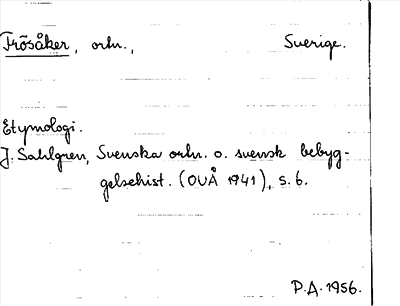 Frösåker, ortn., Sverige.
Etymologi.
J. Sahlgren, Svenska ortn. o. svensk bebyg-
gelsehist. (OUÅ 1941), s. 6.
P.A. 1956.